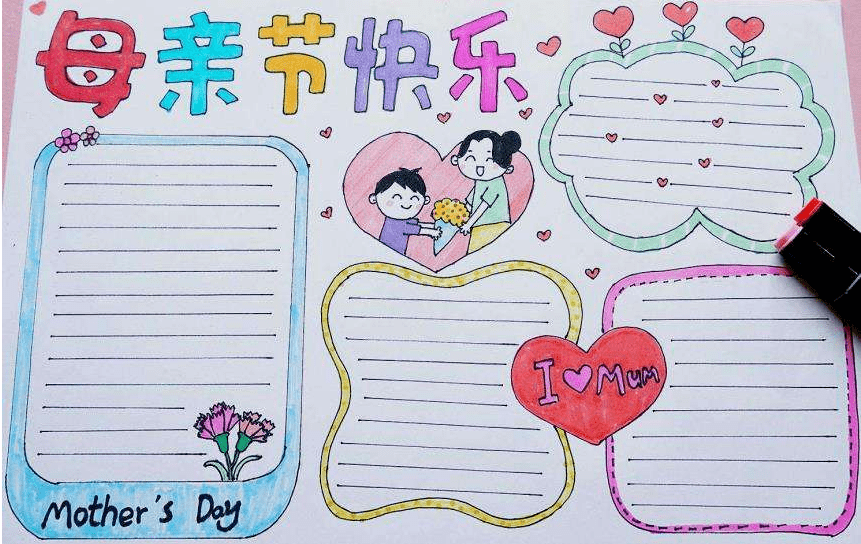 母亲节快乐
I Mum
Mother's Day